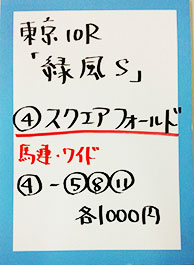 東京10R
「緑風S」
④スクエアフォールド
馬連・ワイド
④-⑤⑧⑪
各1000円